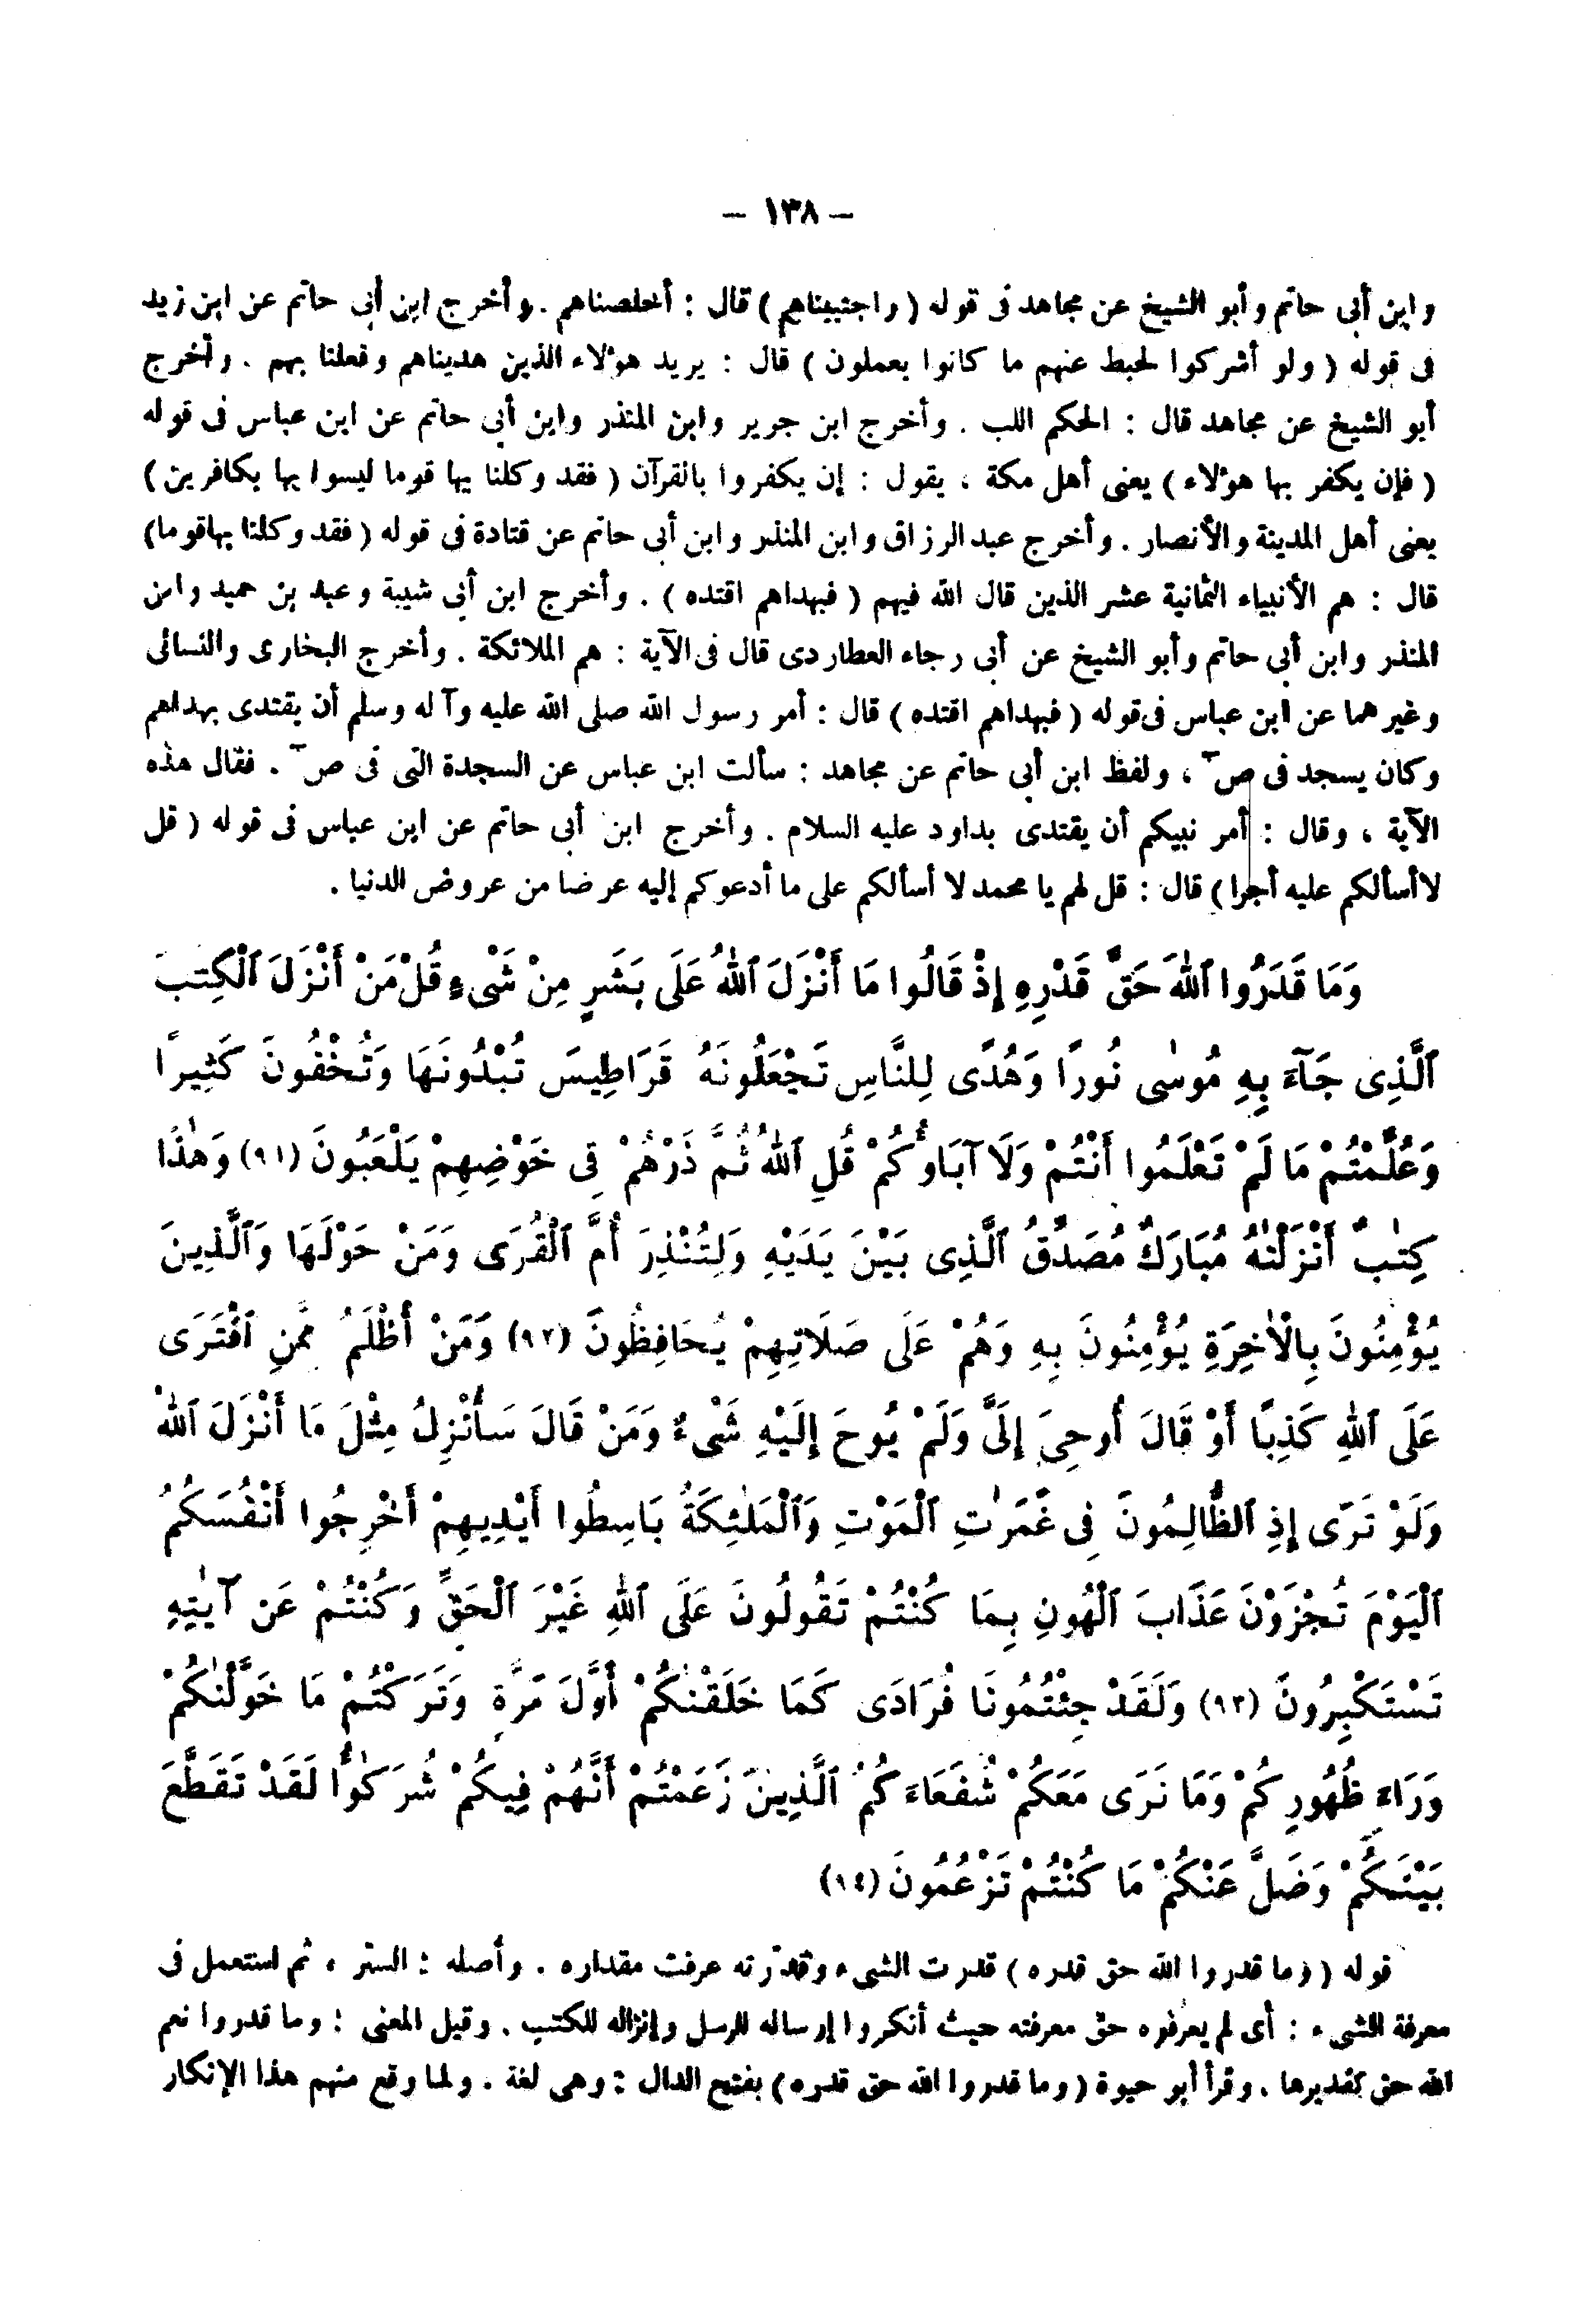 – ١٣٨ –
وابن أبى حاتم وأبو الشيخ عن مجاهد فى قوله ( واجتبيناهم ) قال : أخلصناهم . وأخرج ابن أبى حاتم عن ابن زيد
فى قوله ( ولو أشركوا لحبط عنهم ما كانوا يعملون ) قال : يريد هؤلاء الذين هديناهم وفعلنا بهم . وأخرج
أبو الشيخ عن مجاهد قال : الحكم اللب . وأخرج ابن جرير وابن المنذر وابن أبى حاتم عن ابن عباس فى قوله
( فإن يكفر بها هؤلاء ) يعنى أهل مكة ، يقول : إن يكفروا بالقرآن ( فقد وكلنا بها قوما ليسوا بها بكافرين )
يعنى أهل المدينة والأنصار . وأخرج عبد الرزاق وابن المنذر وابن أبى حاتم عن قتادة فى قوله ( فقد وكلنا بها قوما )
قال : هم الأنبياء الثمانية عشر الذين قال الله فيهم ( فبهداهم اقتده ) . وأخرج ابن أبى شيبة وعبد بن حميد وابن
المنذر وابن أبى حاتم وأبو الشيخ عن أبى رجاء العطاردى قال فى الآية : هم الملائكة . وأخرج البخارى والنسائى
وغيرهما عن ابن عباس فى قوله ( فبهداهم اقتده ) قال : أمر رسول الله صلى الله عليه وآله وسلم أن يقتدى بهداهم
وكان يسجد فى صٓ ، ولفظ ابن أبى حاتم عن مجاهد : سألت ابن عباس عن السجدة التى فى صٓ . فقال هذه
الآية ، وقال : أمر نبيكم أن يقتدى بداود عليه السلام . وأخرج ابن أبى حاتم عن ابن عباس فى قوله ( قل
لا أسألكم عليه أجرا ) قال : قل لهم يا محمد لا أسألكم على ما أدعوكم إليه عرضا من عروض الدنيا .
وَمَا قَدَرُوا ٱللهَ حَقَّ قَدْرِهِ إِذْ قَالُوا مَا أَنْزَلَ ٱللهُ عَلَى بَشَرٍ مِنْ شَىْءٍ قُلْ مَنْ أَنْزَلَ ٱلْكِتٰبَ
ٱلَّذِى جَآءَ بِهِ مُوسٰى نُورًا وَهُدًى لِلنَّاسِ تَجْعَلُونَهُ قَرَاطِيسَ تُبْدُونَهَا وَتُخْفُونَ كَثِيرًا
وَعُلِّمْتُمْ مَا لَمْ تَعْلَمُوا أَنْتُمْ وَلَا آبَاؤُكُمْ قُلِ ٱللهُ ثُمَّ ذَرْهُمْ فِى خَوْضِهِمْ يَلْعَبُونَ (٩١) وَهٰذَا
كِتٰبٌ أَنْزَلْنٰهُ مُبَارَكٌ مُصَدِّقُ ٱلَّذِى بَيْنَ يَدَيْهِ وَلِتُنْذِرَ أُمَّ ٱلْقُرَى وَمَنْ حَوْلَهَا وَٱلَّذِينَ
يُؤْمِنُونَ بِالْاٰخِرَةِ يُؤْمِنُونَ بِهِ وَهُمْ عَلَى صَلَاتِهِمْ يُحَافِظُونَ (٩٢) وَمَنْ أَظْلَمُ مِمَّنِ ٱفْتَرَى
عَلَى ٱللهِ كَذِبًا أَوْ قَالَ أُوحِىَ إِلَىَّ وَلَمْ يُوحَ إِلَيْهِ شَىْءٌ وَمَنْ قَالَ سَأُنْزِلُ مِثْلَ مَا أَنْزَلَ ٱللهُ
وَلَوْ تَرَى إِذِ ٱلظَّالِمُونَ فِى غَمَرٰتِ ٱلْمَوْتِ وَٱلْمَلٰئِكَةُ بَاسِطُوا أَيْدِيهِمْ أَخْرِجُوا أَنْفُسَكُمُ
ٱلْيَوْمَ تُجْزَوْنَ عَذَابَ ٱلْهُونِ بِمَا كُنْتُمْ تَقُولُونَ عَلَى ٱللهِ غَيْرَ ٱلْحَقِّ وَكُنْتُمْ عَنْ آيٰتِهِ
تَسْتَكْبِرُونَ (٩٣) وَلَقَدْ جِئْتُمُونَا فُرَادَى كَمَا خَلَقْنٰكُمْ أَوَّلَ مَرَّةٍ وَتَرَكْتُمْ مَا خَوَّلْنٰكُمْ
وَرَاءَ ظُهُورِكُمْ وَمَا نَرَى مَعَكُمْ شُفَعَاءَكُمُ ٱلَّذِينَ زَعَمْتُمْ أَنَّهُمْ فِيكُمْ شُرَكٰؤُا لَقَدْ تَقَطَّعَ
بَيْنَكُمْ وَضَلَّ عَنْكُمْ مَا كُنْتُمْ تَزْعُمُونَ (٩٤)
قوله ( وما قدروا الله حق قدره ) قدرت الشىء وقدّرته عرفت مقداره . وأصله : الستر ، ثم استعمل فى
معرفة الشىء : أى لم يعرفوه حق معرفته حيث أنكروا إرساله للرسل وإنزاله للكتب . وقيل المعنى : وما قدروا نعم
الله حق تقديرها . وقرأ أبو حيوة ( وما قدروا الله حق قدره ) بفتح الدال : وهى لغة . ولما وقع منهم هذا الإنكار